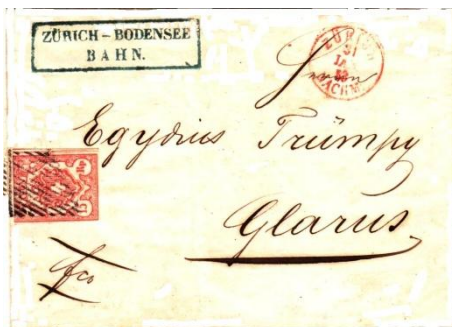 ZÜRICH – BODENSEE
BAHN.
ZÜRICH
31
JAN
NACHM
Herrn
Egydius Trümpy
Glarus.
fco